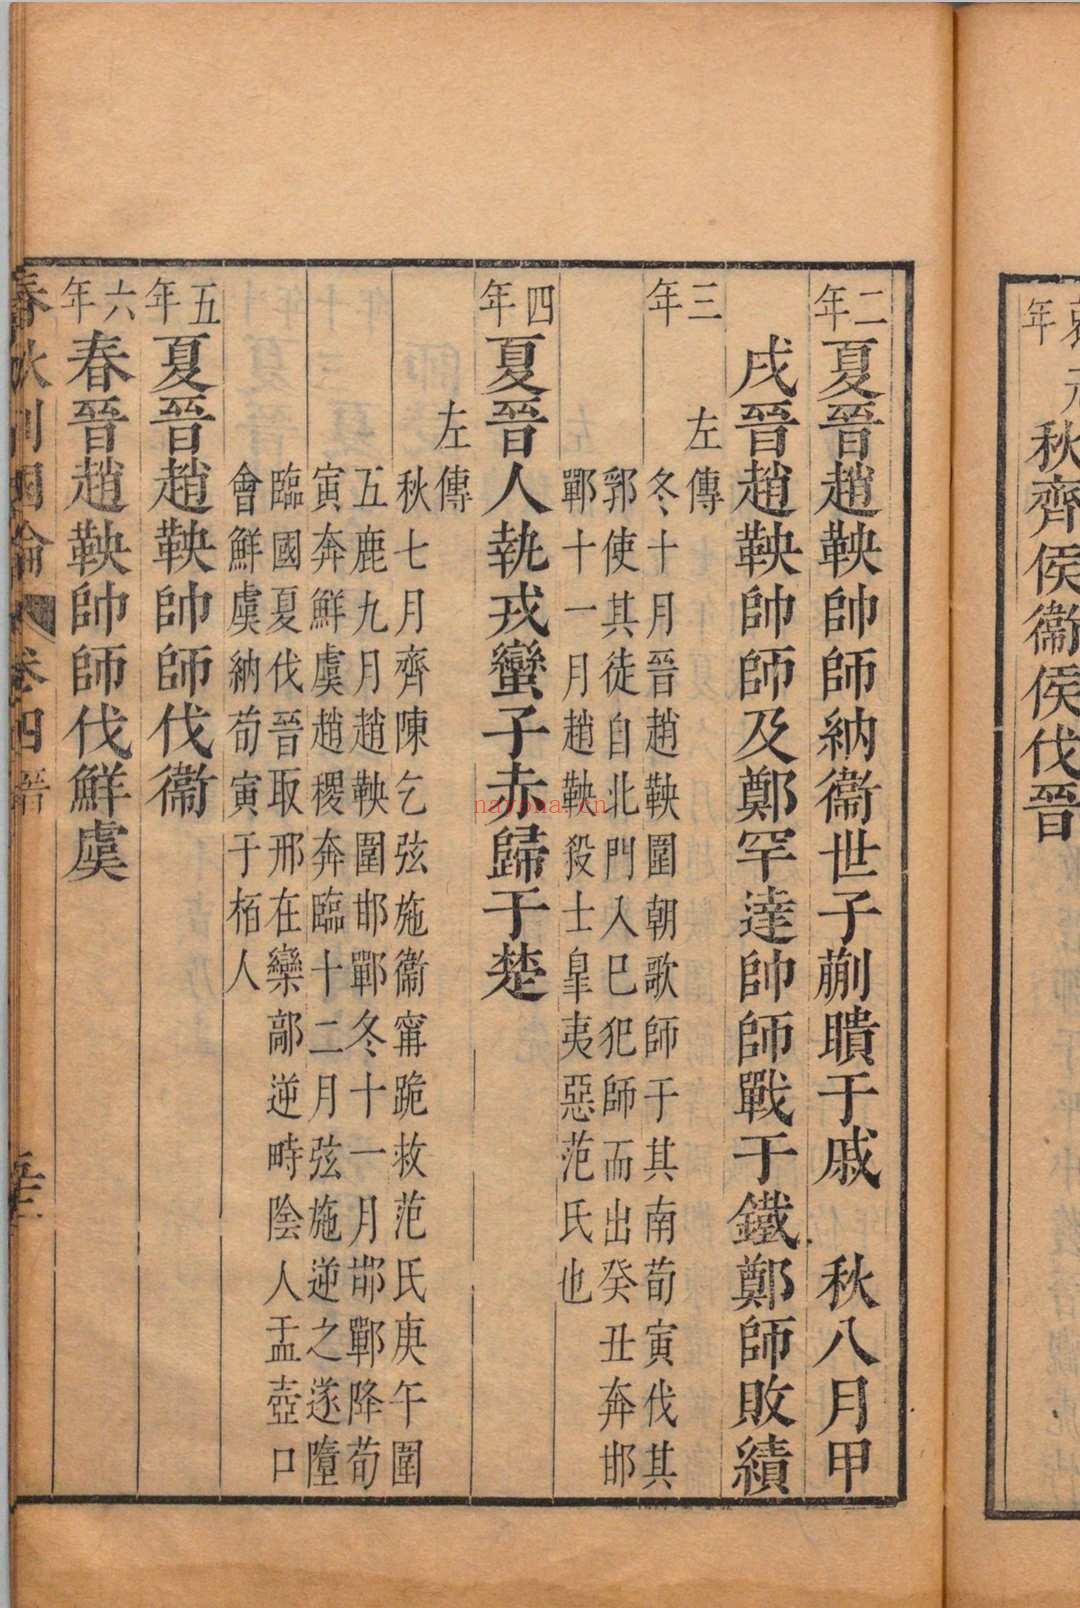 哀元年
秋齊侯衞侯伐晉
二年
夏晉趙鞅帥師納衞世子蒯聵于戚　秋八月甲
戌晉趙鞅帥師及鄭罕達帥師戰于鐵鄭師敗績
左傳
三年
冬十月晉趙鞅圍朝歌師于其南荀寅伐其
郛使其徒自北門入巳犯師而出癸丑奔邯
鄲十一月趙鞅殺士皐夷惡范氏也
四年
夏晉人執戎蠻子赤歸于楚
左傳
秋七月齊陳乞弦施衞甯跪救范氏庚午圍
五鹿九月趙鞅圍邯鄲冬十一月邯鄲降荀
寅奔鮮虞趙稷奔臨十二月弦施逆之遂墮
臨國夏伐晉取邢在欒鄗逆畤陰人盂壺口
會鮮虞納荀寅于栢人
五年
夏晉趙鞅帥師伐衞
六年
春晉趙鞅帥師伐鮮虞
春秋
卷四
nayona.cn